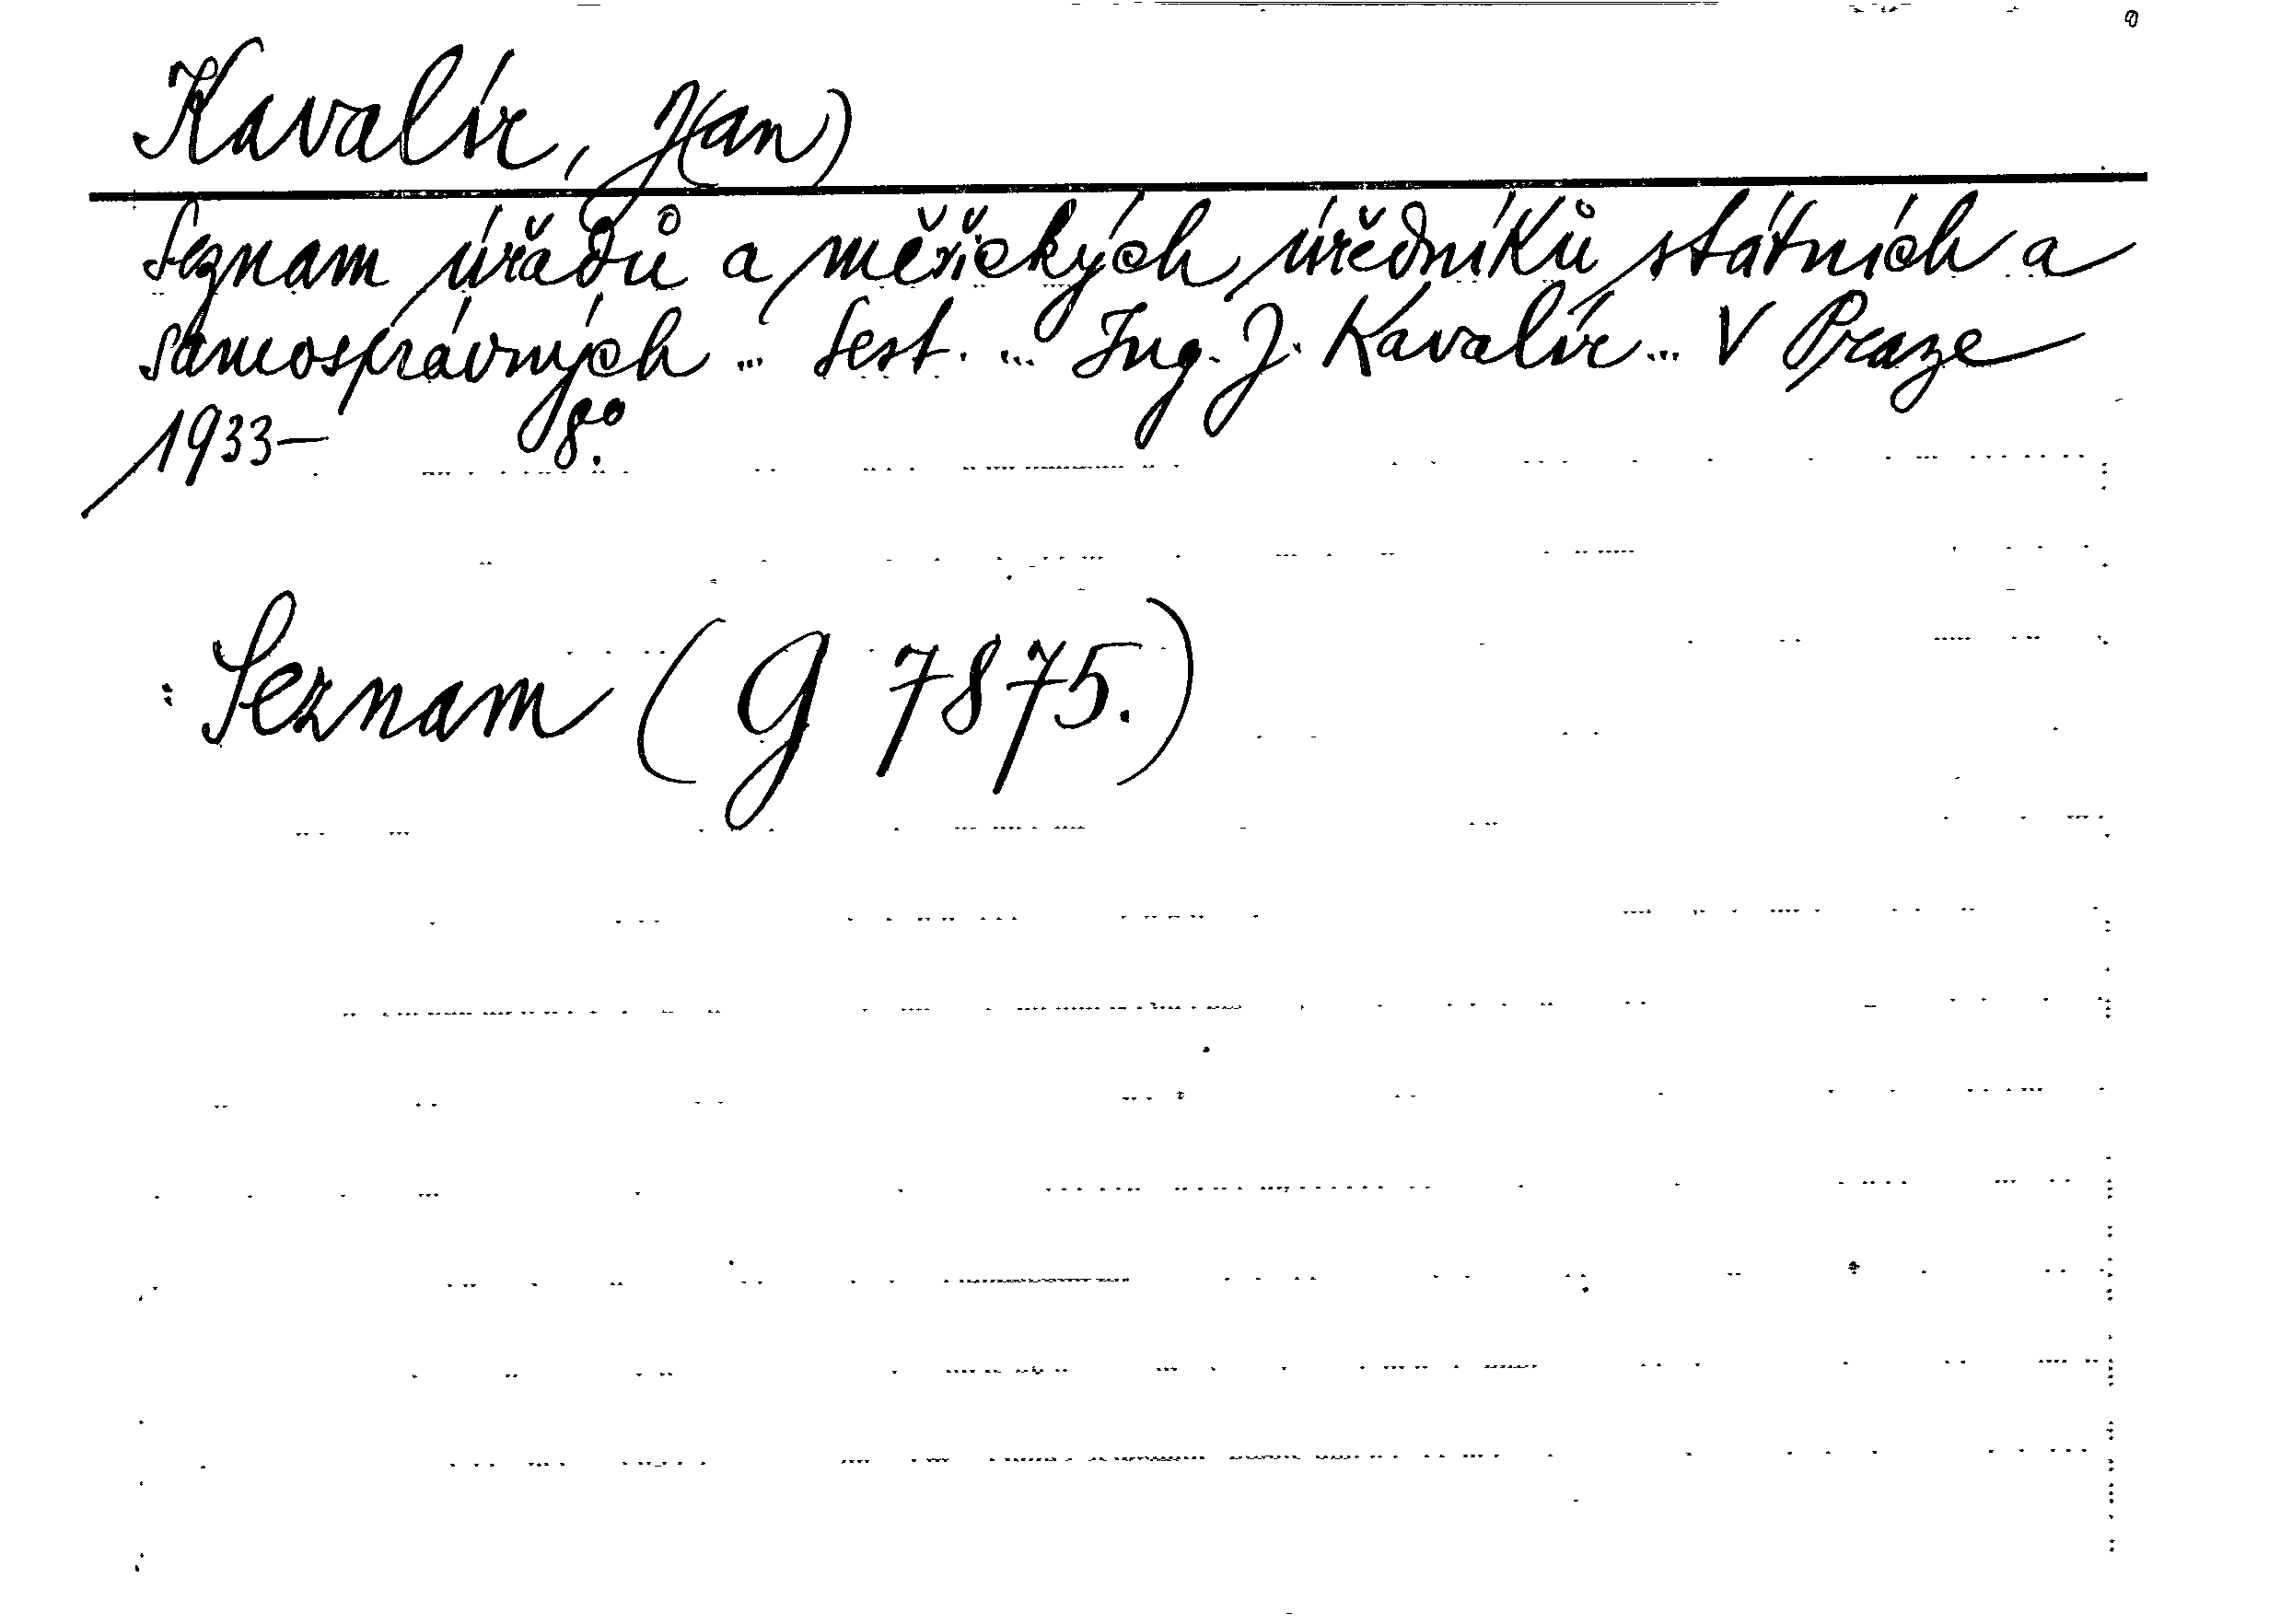 Kavalír, J(an)
Seznam úřadů a měřických úředníků státních a
samosprávných ... Sest. ... Ing. J. Kavalír ... V Praze
1933— 8°.
Seznam (G 7875.)